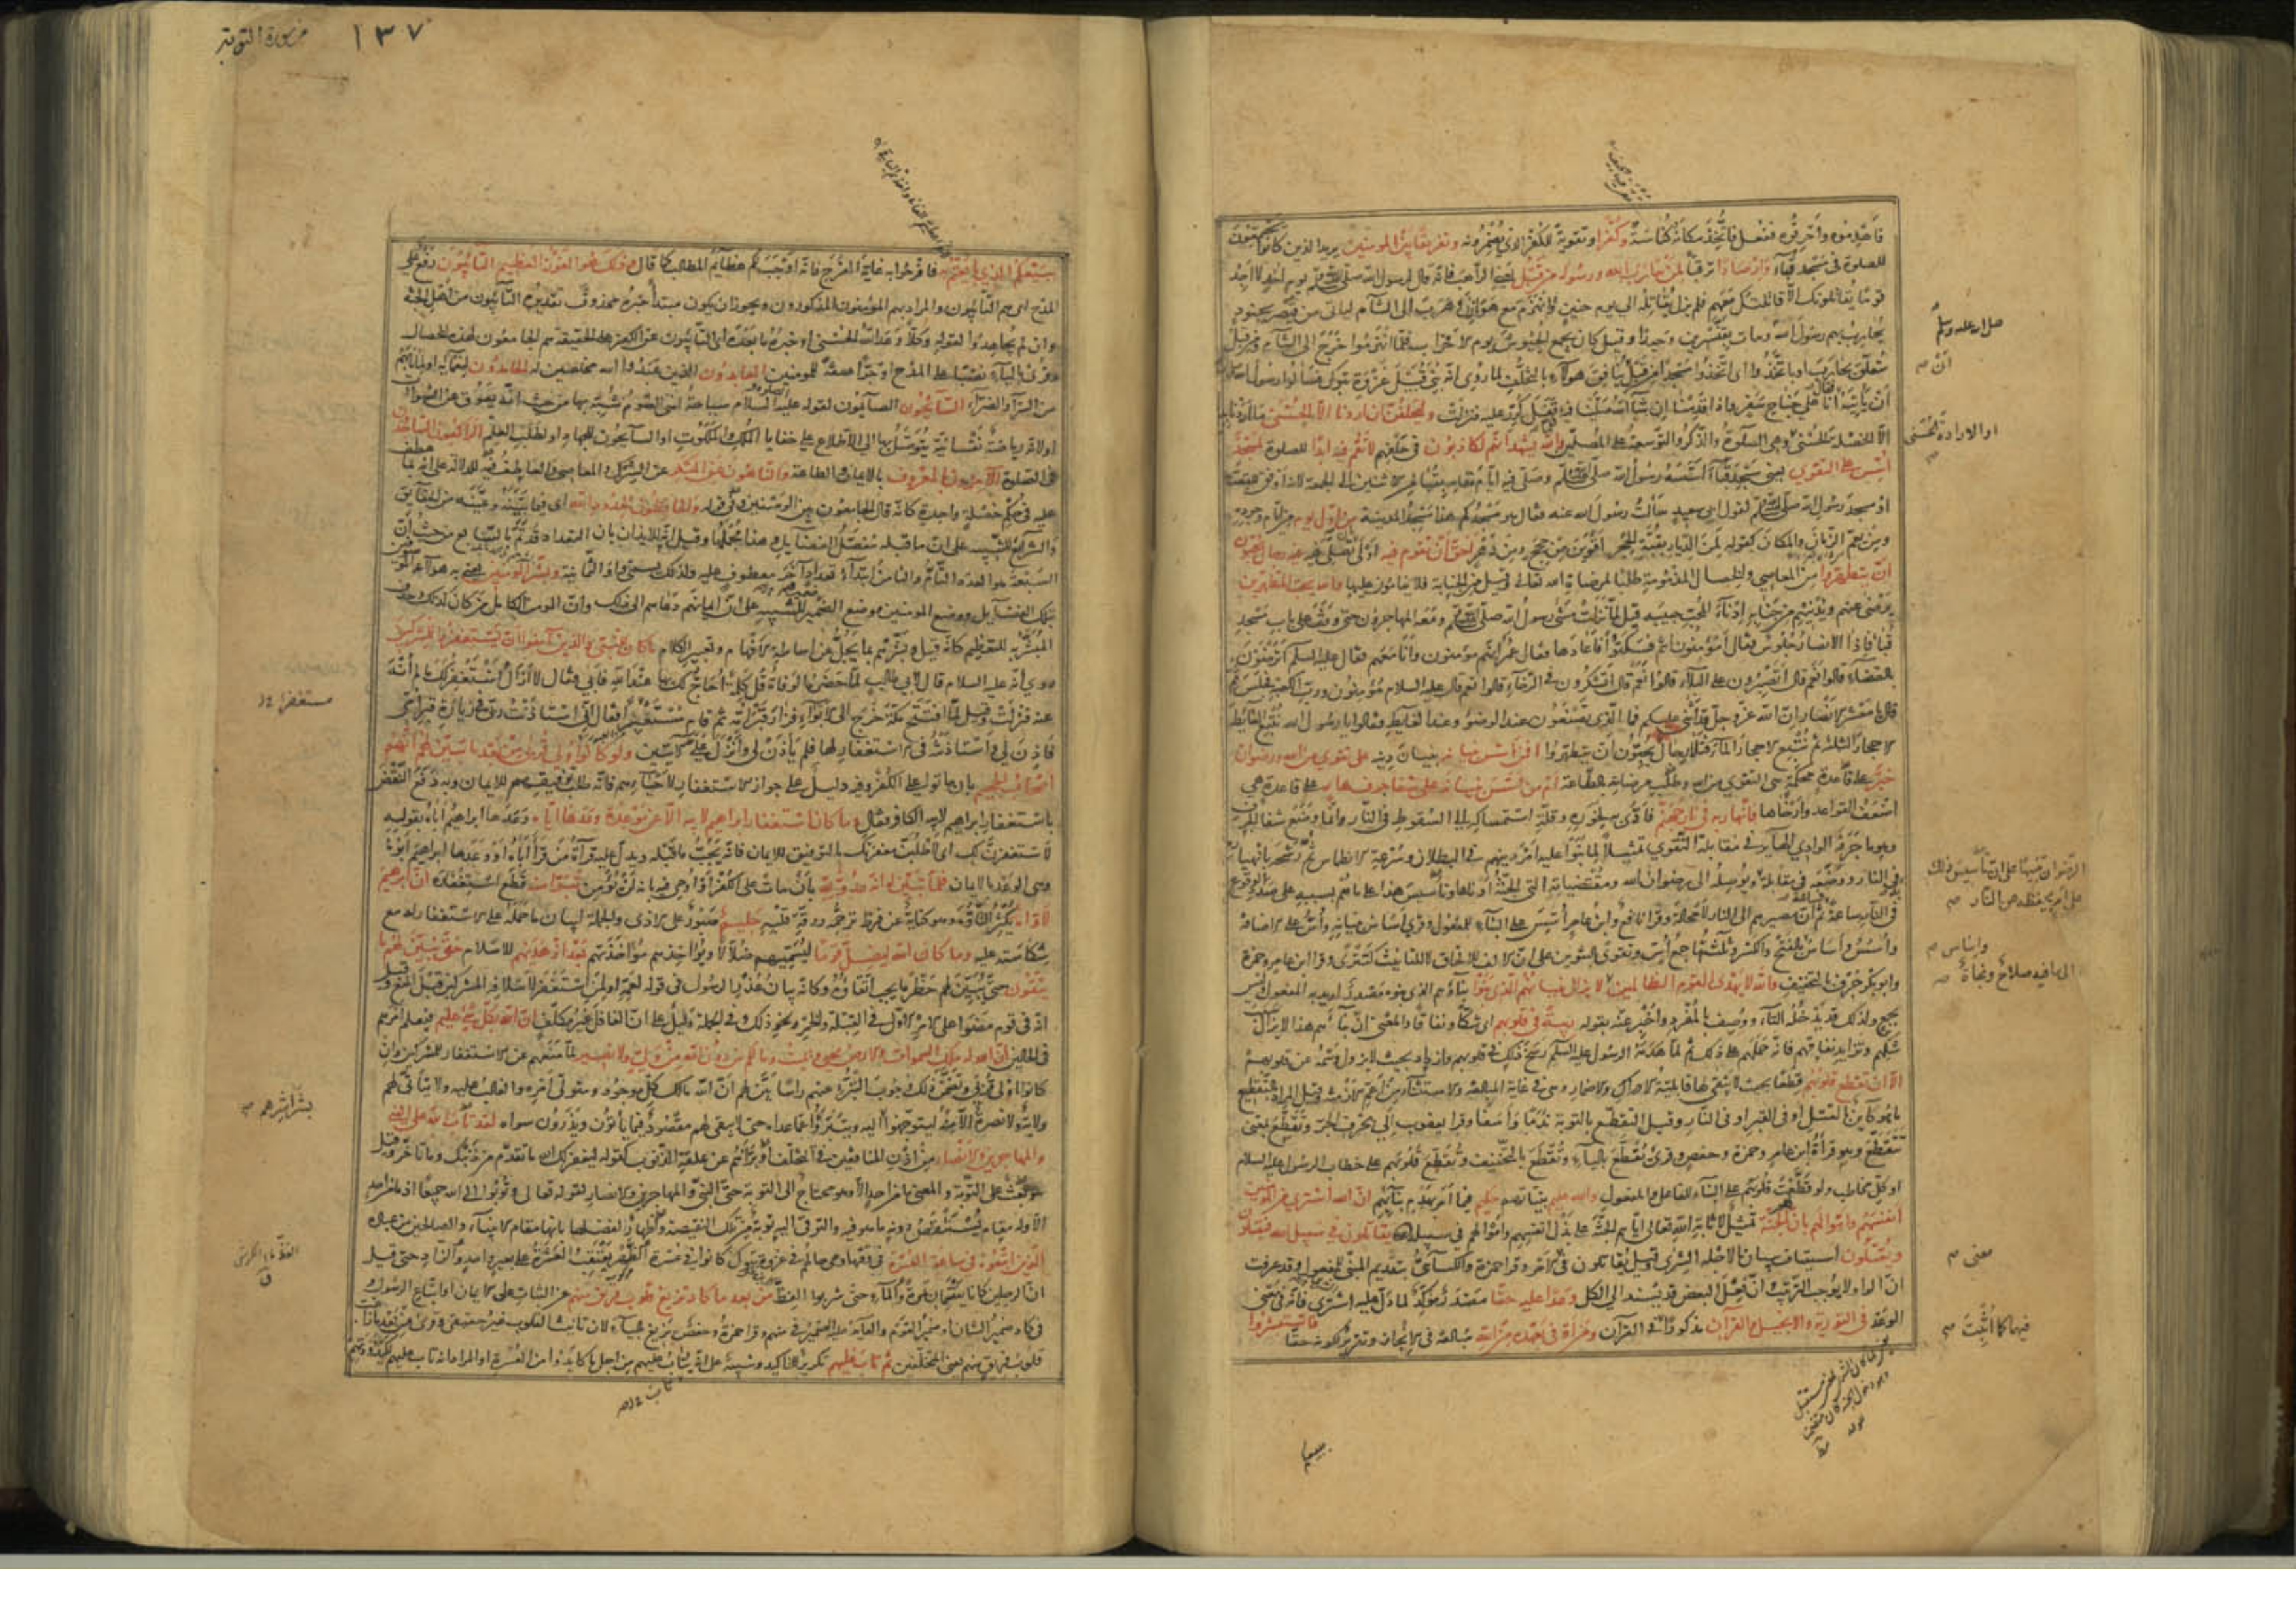 فاهدموه واحرقوه ففعل فاتخذ مكانه كناسة وكفرا وتقوية للكفر الذي يضمرونه وتفريقا بين المومنين يريد الذين كانوا يجتمعون
للصلوة في مسجد قباء وارصادا ترقبا لمن حارب الله ورسوله من قبل يعني الراهب فانه قال لرسول الله صلى الله عليه وسلم يوم احد لا اجد
قوما يقاتلونك الا قاتلتك معهم فلم يزل يقاتله الى يوم حنين وانهزم مع هوازن وهرب الى الشام لياتي من قيصر بجنود
يحارب بهم رسول الله ومات بقنسرين وحيدا وقيل كان يجمع الجيوش يوم الاحزاب فلما انهزموا خرج الى الشام ومن قبل
متعلق بحارب او باتخذوا اى اتخذوا مسجدا من قبل ان ينافق هولاء بالتخلف لما روى انه بني قبيل غزوة تبوك فسالوا رسول الله
ان ياتيه فقال انا على جناح سفر واذا قدمنا ان شاء الله صلينا فيه فلما قفل كرر عليه فنزلت وليحلفن ان اردنا الا الحسنى ما اردنا ببنائه
الا الخصلة الحسنى وهي الصلوة والذكر والتوسعة على المصلين والله يشهد انهم لكاذبون في حلفهم لا تقم فيه ابدا للصلوة لمسجد
اسس على التقوى يعني مسجد قباء اسسه رسول الله صلى الله عليه وسلم وصلى فيه ايام مقامه بقباء من الاثنين الى الجمعة لانه اوفق للقصة
او مسجد رسول الله صلى الله عليه وسلم لقول ابي سعيد سالت رسول الله عنه فقال هو مسجدكم هذا مسجد المدينة من اول يوم من ايام وجوده
ومن يعم الزمان والمكان كقوله لمن الديار بقنة الحجر اقوين من حجج ومن دهر احق ان تقوم فيه اولى بان تصلي فيه فيه رجال يحبون
ان يتطهروا من المعاصي والخصال المذمومة طلبا لمرضاة الله تعالى وقيل من الجنابة فلا ينامون عليها والله يحب المطهرين
يرضى عنهم ويدنيهم من جنابه ادناء المحب حبيبه قيل لما نزلت مشى رسول الله صلى الله عليه وسلم ومعه المهاجرون حتى وقف على باب مسجد
قبا فاذا الانصار جلوس فقال أمومنون انتم فسكتوا فاعادها فقال عمر انهم مومنون وانا معهم فقال عليه السلم اترضون
بالقضاء قالوا نعم قال اتصبرون على البلاء قالوا نعم قال اتشكرون في الرخاء قالوا نعم قال عليه السلام مؤمنون ورب الكعبة فجلس ثم
قال يا معشر الانصار ان الله عز وجل قد اثنى عليكم فما الذي تصنعون عند الوضوء وعند الغايط فقالوا يا رسول الله نتبع الغايط
الاحجار الثلثة ثم نتبع الاحجار الماء فتلا رجال يحبون ان يتطهروا افمن اسس بنيانه بنيان دينه على تقوى من الله ورضوان
خير على قاعدة محكمة هي التقوى من الله وطلب مرضاته بالطاعة ام من اسس بنيانه على شفا جرف هار على قاعدة هي
اضعف القواعد وارخاها فانهار به في نار جهنم فادى به لخوره وقلة استمساكه الى السقوط في النار وانما وضع شفا الجرف
وهو ما جرفه الوادي الهاير في مقابلة التقوى تمثيلا لما بنوا عليه امر دينهم في البطلان وسرعة الانطماس ثم رشحه بانهياره
في النار ووضعه في مقابلة
في النار ساعة فساعة ثم ان مصيرهم الى النار لا محالة وقرا نافع وابن عامر أسس على البناء للمفعول وقرئ اساس بنيانه وأس على الاضافة
وأسس وآساس بالفتح والكسر وثلثتها جمع أس وتقوى بالتنوين على ان الالف للالحاق لا للتانيث كتترى وقرا ابن عامر وحمزة
وابو بكر جرف بالتخفيف والله لا يهدي القوم الظالمين لا يزال بنيانهم الذي بنوا بناؤهم الذي بنوه مصدر اريد به المفعول وليس
بجمع ولذلك قد يدخله التاء ووصف بالمفرد واخبر عنه بقوله ريبة في قلوبهم اى شكا ونفاقا والمعنى ان بناءهم هذا لا يزال سبب
شكهم وتزايد نفاقهم فانه حملهم على ذلك ثم لما هدمه الرسول عليه السلم رسخ ذلك في قلوبهم وازداد بحيث لا يزول وسمه عن قلوبهم
الا ان تقطع قلوبهم قطعا بحيث لا يبقى لها قابلية الادراك والاضمار وهى في غاية المبالغة والاستثناء من اعم الازمنة وقيل المراد بالتقطع
ما هو كاين بالقتل او في القبر او في النار وقيل التقطع بالتوبة ندما واسفا وقرا يعقوب الى بحرف الجر وتقطع بمعنى
تتقطع وهو قراءة ابن عامر وحمزة وحفص وقرئ يقطع بالياء وتقطع بالتخفيف وتقطع قلوبهم على خطاب الرسول عليه السلام
او كل مخاطب ولو قطعت قلوبهم على البناء للفاعل والمفعول والله عليم بنياتهم حكيم فيما امر بهدم بنائهم ان الله اشترى من المومنين
انفسهم واموالهم بان لهم الجنة تمثيل لاثابة الله تعالى اياهم الجنة على بذل انفسهم واموالهم في سبيله يقاتلون في سبيل الله فيقتلون
ويقتلون استيناف ببيان ما لاجله الشرى وقيل يقاتلون في الامر وقرا حمزة والكسائى بتقديم المبني للمفعول وقد عرفت
ان الواو لا يوجب الترتيب وان فعل البعض قد يسند الى الكل وعدا عليه حقا مصدر مؤكد لما دل عليه اشترى فانه في معنى
الوعد في التورية والانجيل والقران مذكورا في القرآن ومن اوفى بعهده من الله مبالغة في الانجاز وتقرير لكونه حقا فاستبشروا
صلى الله عليه وسلم
ان
او الارادة الحسنى
على امر يحفظه من النار
معنى
فيهما كما اثبت
١٣٧
من سورة التوبة
ببيعكم الذي بايعتم به فافرحوا به غاية الفرح فانه اوجب لكم عظايم المطالب كما قال وذلك هو الفوز العظيم التائبون رفع على
المدح اى هم التائبون والمراد بهم المومنون المذكورون ويجوز ان يكون مبتدأ خبره محذوف تقديره التائبون من اهل الجنة
وان لم يجاهدوا لقوله وكلا وعد الله الحسنى او خبره ما بعده اى التائبون عن الكفر على الحقيقة هم الجامعون لهذه الخصال
وقرئ بالياء نصبا على المدح او جرا صفة للمومنين العابدون الذين عبدوا الله مخلصين له الحامدون لنعمائه او لما نابهم
من السراء والضراء السائحون الصائمون لقوله عليه السلام سياحة امتى الصوم شبه بها من حيث انه يعوق عن الشهوات
او لانه رياضة نفسانية يتوصل بها الى الاطلاع على خفايا الملك والملكوت او السائحون للجهاد او لطلب العلم الراكعون الساجدون
في الصلوة الآمرون بالمعروف بالايمان والطاعة والناهون عن المنكر عن الشرك والمعاصي والعاطف فيه للدلالة على انه بما عطف
عليه في حكم خصلة واحدة كانه قال الجامعون بين الوصفين وفي قوله والحافظون لحدود الله اى فيما بينه وعينه من الحقايق
والشرايع للتنبيه على ان ما قبله مفصل الفضايل وهذا مجملها وقيل انه للايذان بان التعداد قد تم بالسابع من حيث ان
السبعة هو العدد التام والثامن ابتداء تعداد آخر معطوف عليه ولذلك يسمى واو الثمانية وبشر المومنين يعني به هولاء الموصوفين
بتلك الفضايل ووضع المومنين موضع الضمير للتنبيه على ان ايمانهم دعاهم الى ذلك وان المومن الكامل من كان كذلك وحذف
المبشر به للتعظيم كانه قيل وبشرهم بما يجل عن احاطة الافهام وتعبير الكلام ما كان للنبي والذين آمنوا ان يستغفروا للمشركين
روي انه عليه السلام قال لابي طالب لما حضره الوفاة قل كلمة احاج لك بها عند الله فابى فقال لا ازال استغفر لك ما لم انه
عنه فنزلت وقيل لما افتتح مكة خرج الى الابواء فزار قبر امه ثم قام مستعبرا فقال انى استاذنت ربى في زيارة قبر امى
فاذن لي واستاذنته في الاستغفار لها فلم ياذن لى وانزل على الآيتين ولو كانوا اولى قربى من بعد ما تبين لهم انهم
اصحاب الجحيم بان ماتوا على الكفر وفيه دليل على جواز الاستغفار لاحيائهم فانه طلب توفيقهم للايمان وبه دفع النقض
باستغفار ابراهيم لابيه الكافر فقال وما كان استغفار ابراهيم لابيه الا عن موعدة وعدها اياه وعدها ابراهيم اباه بقوله
لاستغفرن لك اى لاطلبن مغفرتك بالتوفيق للايمان فانه يجب ما قبله ويدل عليه قراءة من قرأ اباه او وعدها ابراهيم ابوه
وهي الوعد بالايمان فلما تبين له انه عدو لله بان مات على الكفر او اوحي فيه بانه لن يؤمن تبرا منه قطع استغفاره ان ابراهيم
لاواه يكثر التأوه وهو كناية عن فرط ترحمه ورقة قلبه حليم صبور على الاذى والجملة لبيان ما حمله على الاستغفار له مع
شكاسته عليه وما كان الله ليضل قوما ليسميهم ضلالا ويؤاخذهم مؤاخذتهم بعد اذ هديهم للاسلام حتى يبين لهم ما
يتقون حتى يبين لهم حظر ما يجب اتقاؤه وكانه بيان عذر الرسول في قوله لعمه او لمن استغفر لاسلافه المشركين قبل المنع وقيل
انه في قوم مضوا على الامر الاول في القبلة والخمر ونحو ذلك وفي الجملة دليل على ان الغافل غير مكلف ان الله بكل شئ عليم فيعلم امرهم
في الحالين ان الله له ملك السموات والارض يحيي ويميت وما لكم من دون الله من ولى ولا نصير لما منعهم عن الاستغفار للمشركين وان
كانوا اولى قربى وتضمن ذلك وجوب التبرؤ عنهم راسا بين لهم ان الله مالك كل موجود ومتولى امره والغالب عليه ولا يتأتى لهم
ولاية ولا نصرة الا منه ليتوجهوا اليه ويتبرؤا عما عداه حتى لا يبقى لهم مقصود فيما يأتون ويذرون سواه لقد تاب الله على النبي
والمهاجرين والانصار من اذن المنافقين في التخلف او برأهم عن علقة الذنوب كقوله ليغفر لك الله ما تقدم من ذنبك وما تاخر وقيل
هو بعث على التوبة والمعنى ما من احد الا وهو محتاج الى التوبة حتى النبي والمهاجرين والانصار لقوله تعالى وتوبوا الى الله جميعا اذ ما من احد
الا وله مقام يستنقص دونه ما هو فيه والترقى اليه توبة من تلك النقيصة واظهار لفضلها بانها مقام الانبياء والصالحين من عباده
الذين اتبعوه في ساعة العسرة في وقتها وهي حالهم في غزوة تبوك كانوا في عسرة الظهر يعتقب العشرة على بعير واحد والزاد حتى قيل
ان الرجلين كانا يقتسمان تمرة والماء حتى شربوا الفظ من بعد ما كاد تزيغ قلوب فريق منهم عن الثبات على الايمان او اتباع الرسول
في كاد ضمير الشان او ضمير القوم والعايد عليه الضمير في منهم وقرا حمزة وحفص يزيغ بالياء لان تانيث القلوب غير حقيقي وقرئ
قلوب فريق منهم يعني المتخلفين ثم تاب عليهم تكرير للتاكيد وتنبيه على انه يتاب عليهم من اجل ما كابدوا من العسرة او المراد انه تاب عليهم لكيدودتهم
مستغفرا